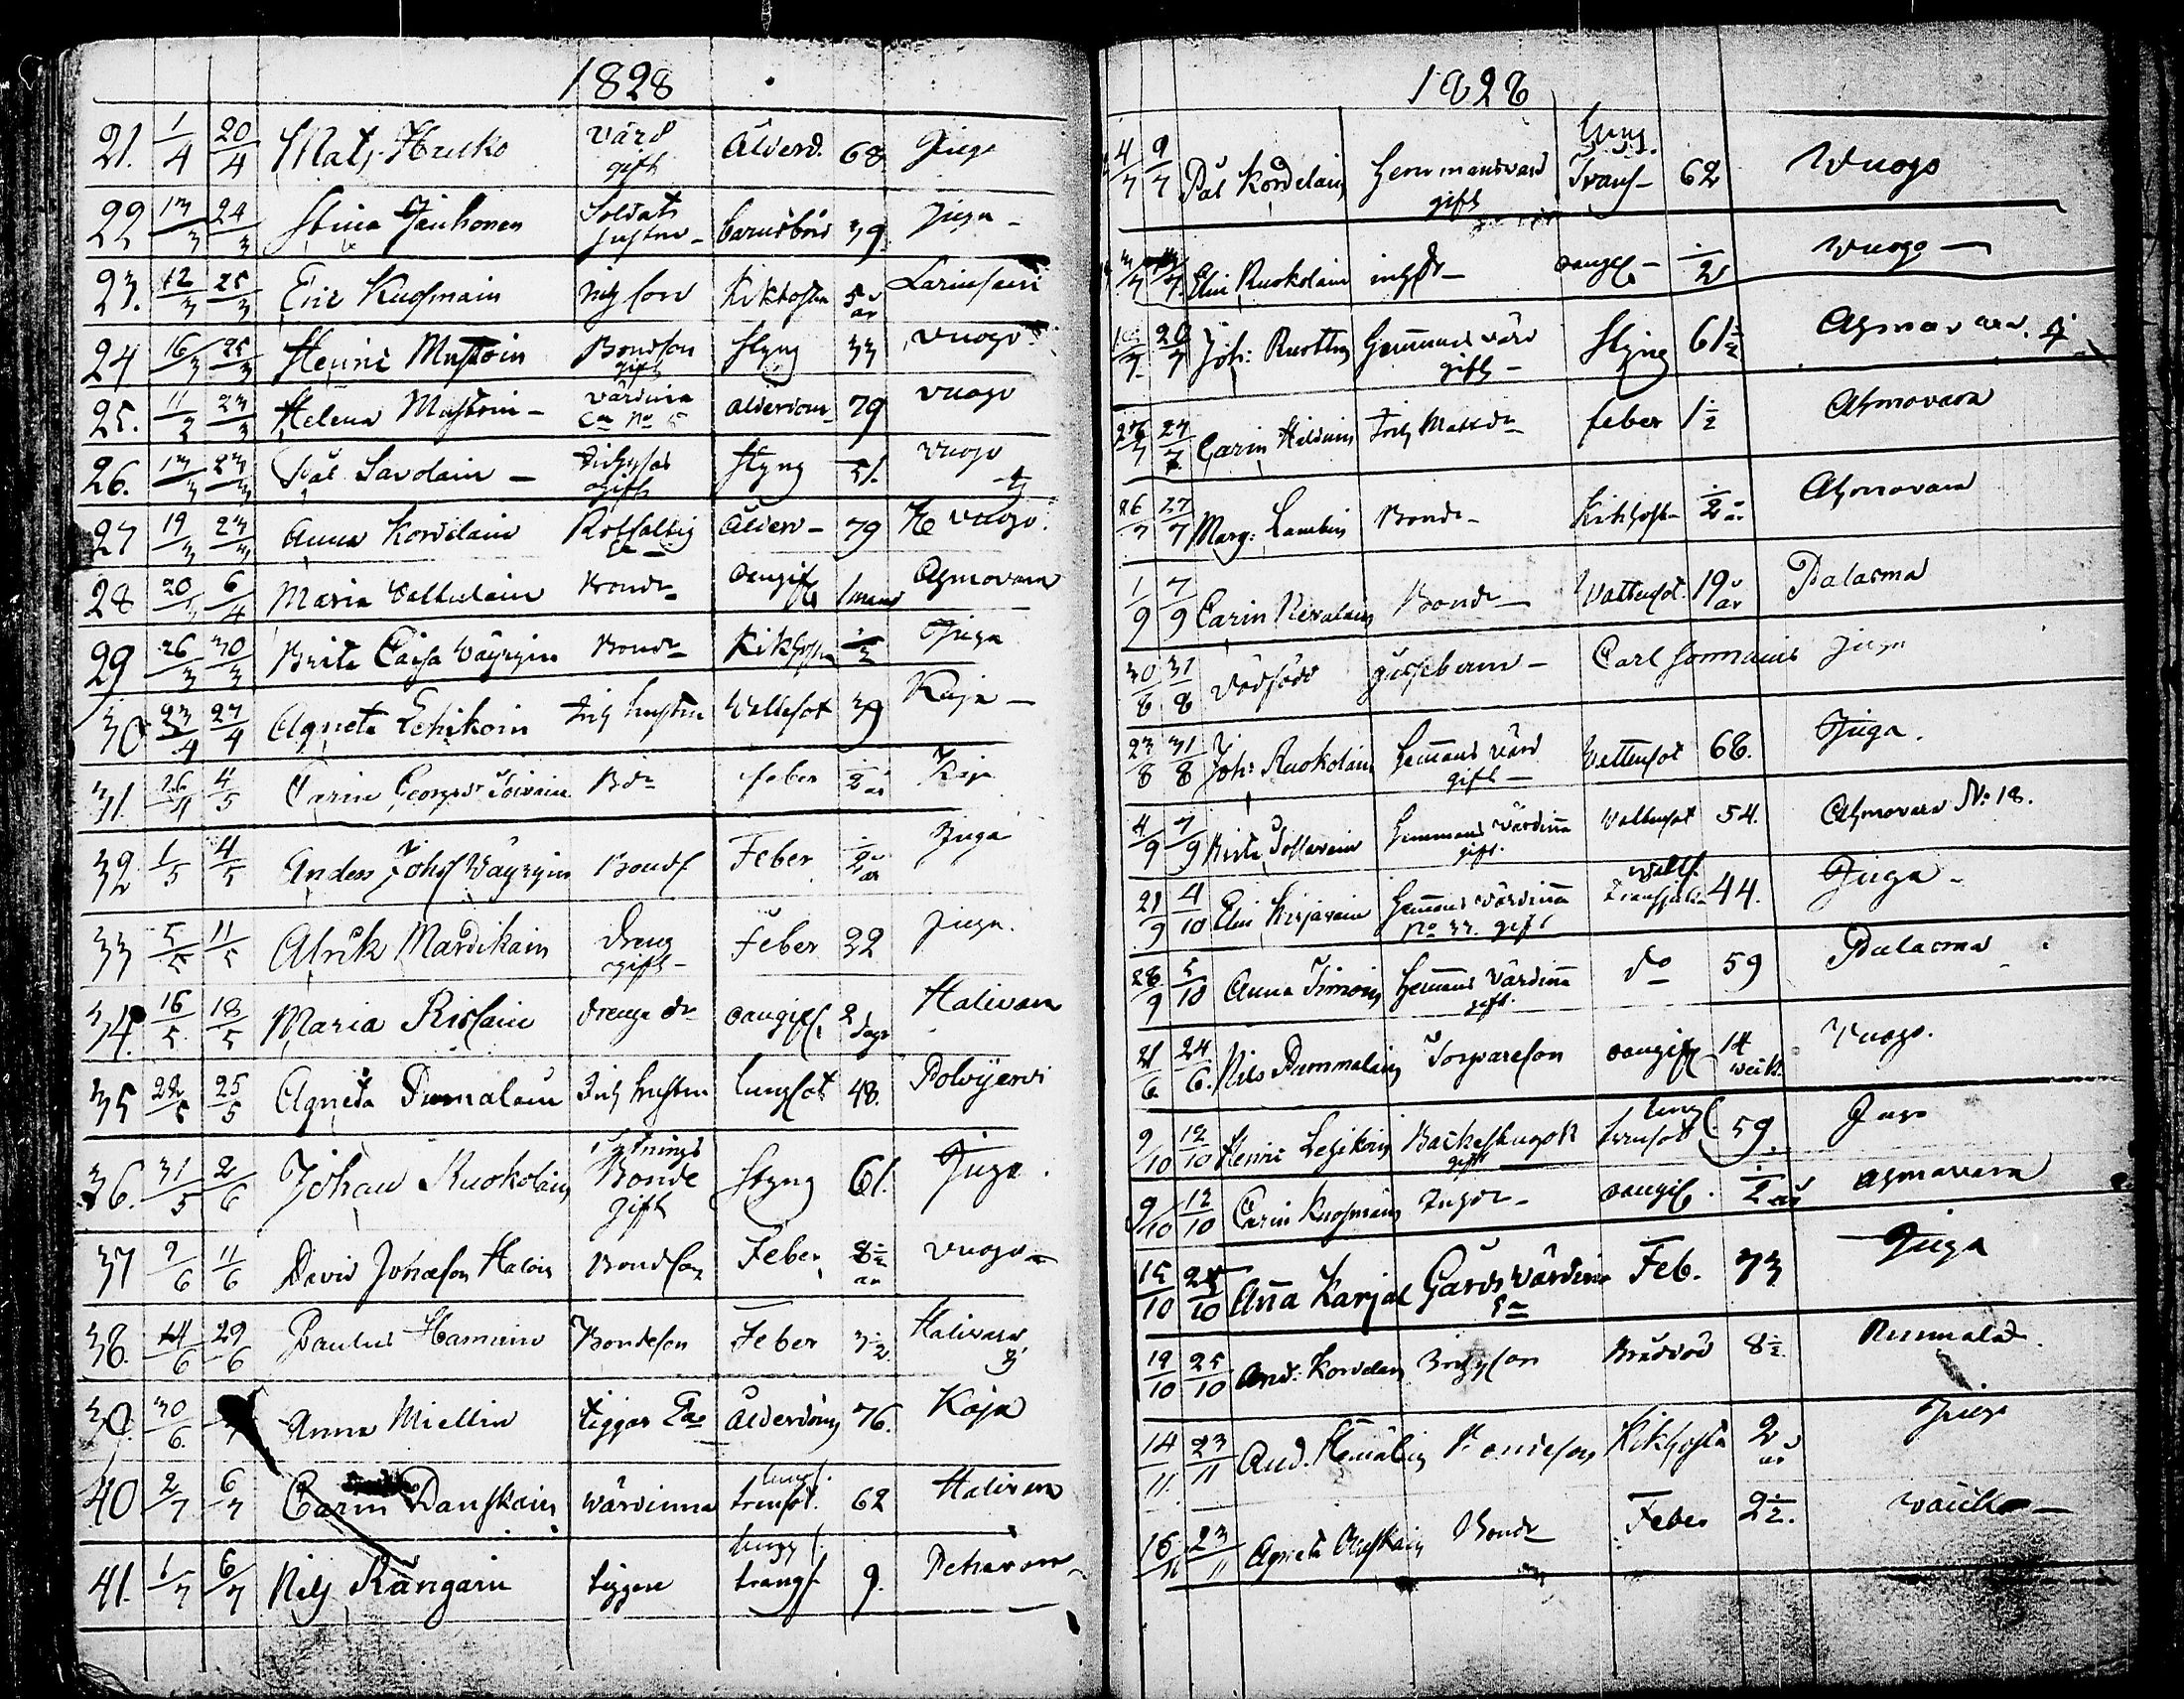 1828
21. 1/4 20/4 Mats Hucko värd gift Ålderd. 68 Juga
22 13/3 24/3 Stina Jauhonen Soldats hustru barnsbörd 39 Juga
23. 12/3 25/3 Eric Kuosmain Inh son Kikhosta 5 år
24 16/3 25/3 Henric Mustoin Bondson gift Styng 33 Vuogo
25. 11/2 23/3 Helena Mustoin värdina Ea No 5 ålderdom 79 vuogo
26. 13/3 23/3 Pål Savolain gift Styng 51. vuogo
27 19/3 23/3 Anna Kordelain Rotfattig Ea Ålderd 79 vuogo.
28 20/3 6/4 Maria Bondr oangift 1 månad Ahmovara
29 26/3 30/3 Brita Caisa Väyrynn Bondr Kikhosta 1/2 Juga
30 23/4 27/4 Agneta Lehikoin Inh hustru Vattusot 39 Kaja
31. 26/4 4/5 Carin Georgsdr Toivain Bdr feber 1/2 år Kaja
32 1/5 4/5 Anders Johsf Väyrynn Bonds Feber 1/2 år Juga
33 5/5 11/5 Alrik Mardikain Dreng gift Feber 32 Juga.
34. 16/5 18/5 Maria Rissain drenge dr oangift 2 dagr Halivara
35 22/5 25/5 Agneta Pumalain Inh hustru lungsot 48. Polvijervi
36. 31/5 2/6 Johan Ruokolain Sytnings Bonde gift Styng 61. Juga.
37 9/6 11/6 David Johansson Haloin Bondson Feber 8 1/2 år vuogo
38. 14/6 29/6 Paulus Hamunn Bondeson Feber 3 1/2. Halivara 3
39. 30/6. Anna Miellin tiggar Ea Ålderdom 76. Kaja
40 2/7 6/7 Carin Danskain Wärdinna lungs. transot. 62 Halivara
41. 1/7 6/7 Nils Rångain tiggare lungs trangs 9.
1828
4/7 9/7 Pål Kordelain Hemmansvärd gift Lung Trans 62 Wuogo
Elin Ruokolain inhdr oangif 1/2 Wuogo
20/7 Joh: Ruottin Hemmans värd gift Styng 61 1/2 Ahmovara. 7
26/7 27/7 Carin Inh Mattsdr feber 1 1/2 Ahmovara
26/7 27/7 Marg: Lambin Bondr Kikhosta 1/2 år Ahmovara
1/9 7/9 Carin Nevalain Bondr Vattusot. 19 år Palasma
30/8 31/8 Dödfödd gossebarn Carl Sormains Juga
23/8 31/8 Joh: Ruokolain Hemmans värd gift Vattusot 68. Juga.
4/9 7/9 Brita Hemmans värdinna gift. Vattusot 54. Ahmovara No 18.
21/9 4/10 Elin Kirjavain Hemmans värdinna No 33. gift watts. Transjuka 44. Juga
28/9 5/10 Anna Timoin Hemmans värdinna gift. do 59 Palasma
21/6 24/6. Nils Pummalain Torpareson oangift 14 veck. Vuogo.
9/10 12/10 Henric Lehikoin Backstugok gift lung transot 59. Juga
9/10 12/10 Carin Kuosmain Inhdr oangif. 1/2 år Ahmavara
15/10 25/10 Anna Karjal Gårds värdina Ea Feb. 73 Juga
19/10 25/10 And: Kordelain Inhyson Brådöd 8 1/2.
14/11. 23/11 And. Hämälin Bondeson Kikhosta 2 år Juga
16/11 23/11 Agneta Bondr Feber 2 1/2.